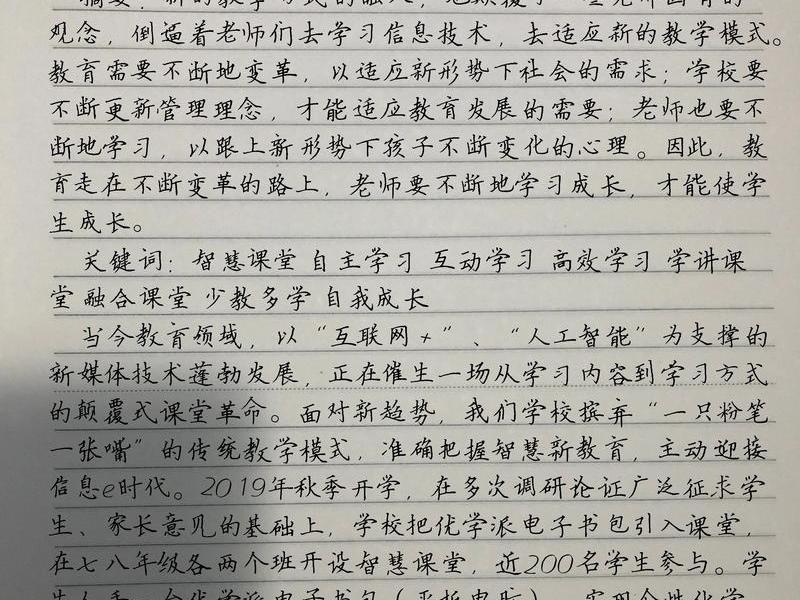 摘要：新的教学方式的融入，也颠覆了一些老师固有的
观念，倒逼着老师们去学习信息技术，去适应新的教学模式。
教育需要不断地变革，以适应新形势下社会的需求；学校要
不断更新管理理念，才能适应教育发展的需要；老师也要不
断地学习，以跟上新形势下孩子不断变化的心理。因此，教
育走在不断变革的路上，老师要不断地学习成长，才能使学
生成长。
关键词：智慧课堂 自主学习 互动学习 高效学习 学讲课
堂 融合课堂 少教多学 自我成长
当今教育领域，以“互联网+”、“人工智能”为支撑的
新媒体技术蓬勃发展，正在催生一场从学习内容到学习方式
的颠覆式课堂革命。面对新趋势，我们学校摈弃“一只粉笔
一张嘴”的传统教学模式，准确把握智慧新教育，主动迎接
信息e时代。2019年秋季开学，在多次调研论证广泛征求学
生、家长意见的基础上，学校把优学派电子书包引入课堂，
在七八年级各两个班开设智慧课堂，近200名学生参与。学
生人手一台优学派电子书包（平板电脑），实现个性化学